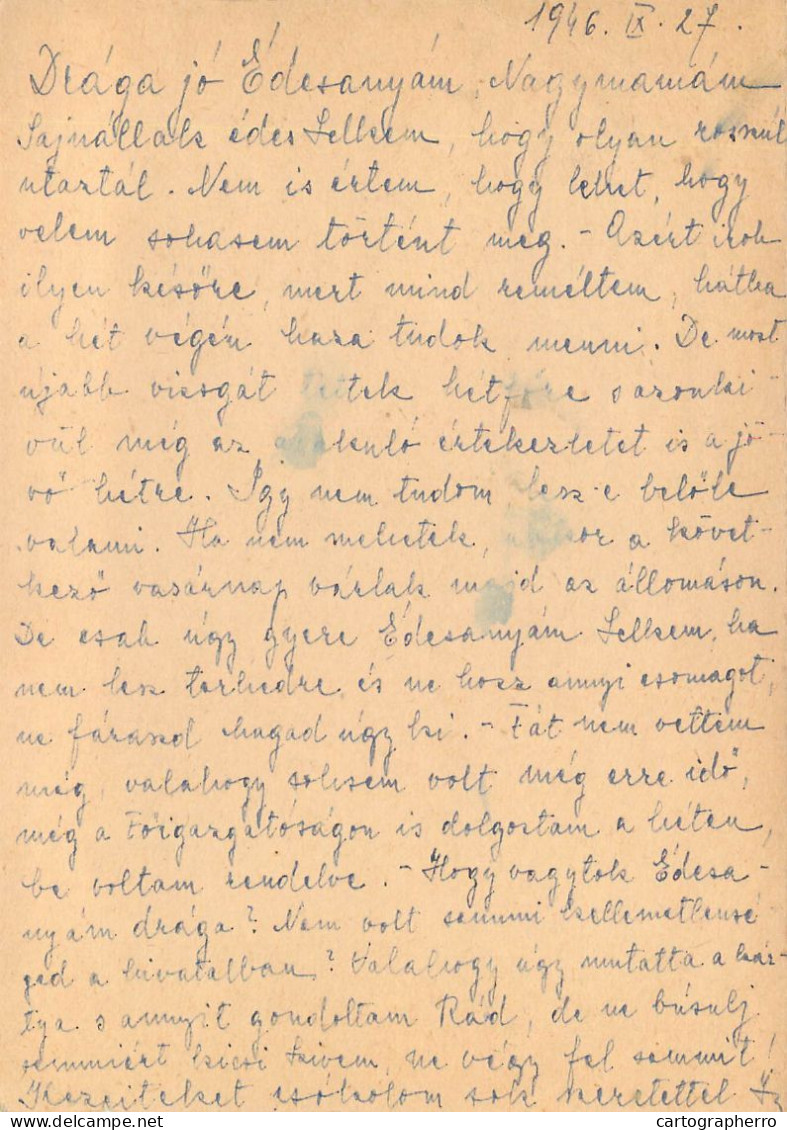 1946. IX. 27.
Drága jó Édesanyám, Nagymamám
Sajnállak édes Lelkem, hogy olyan rosszúl
utaztál. Nem is értem, hogy lehet, hogy
velem sohasem történt meg. - Azért irok
ilyen későre, mert mind reméltem, hátha
a hét végén haza tudok menni. De most
újabb vizsgát tettek hétfőre s azonki-
vül még az alakuló értekezletet is a jö-
vő hétre. Igy nem tudom lesz-e belőle
valami. Ha nem mehetek, akkor a követ-
kező vasárnap várlak majd az állomáson.
De csak úgy gyere Édesanyám Lelkem, ha
nem lesz terhedre és ne hozz annyi csomagot,
ne fáraszd magad úgy ki. - Fát nem vettem
még, valahogy sohsem volt még erre idő,
még a Főigazgatóságon is dolgoztam a héten,
be voltam rendelve. - Hogy vagytok Édesa-
nyám drága? Nem volt semmi kellemetlensé-
ged a hivatalban? Valahogy úgy mutatta a kár-
tya s annyit gondoltam Rád, de ne búsulj
semmiért kicsi Szivem, ne végy fel semmit!
Kezeiteket csókolom sok szeretettel Iz
cartographerro